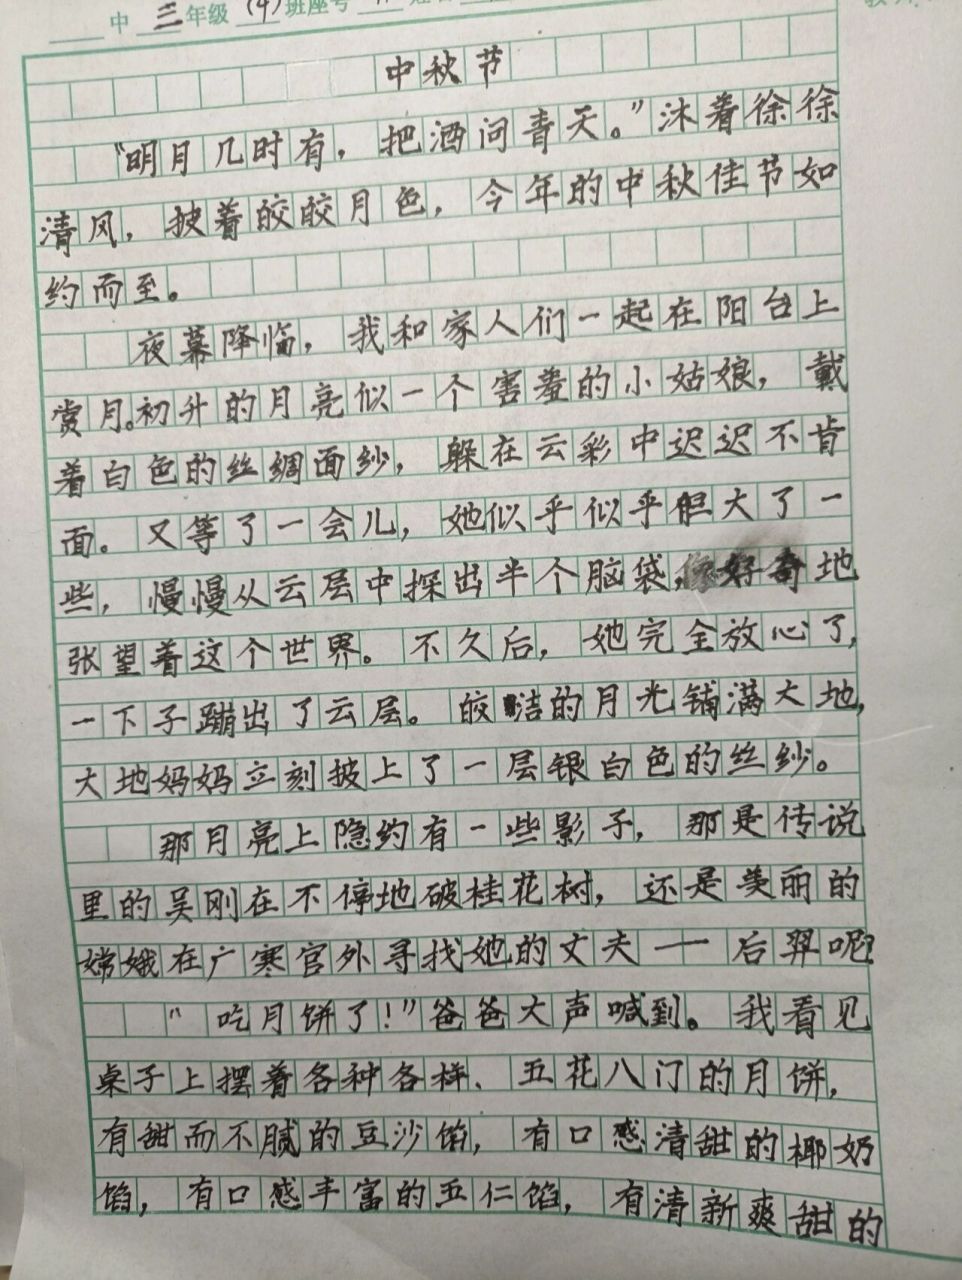 中 三 年级 (4) 班座号
中秋节
“明月几时有，把酒问青天。”沐着徐徐
清风，披着皎皎月色，今年的中秋佳节如
约而至。
夜幕降临，我和家人们一起在阳台上
赏月。初升的月亮似一个害羞的小姑娘，戴
着白色的丝绸面纱，躲在云彩中迟迟不肯
面。又等了一会儿，她似乎似乎胆大了一
些，慢慢从云层中探出半个脑袋，像好奇地
张望着这个世界。不久后，她完全放心了，
一下子蹦出了云层。皎洁的月光铺满大地，
大地妈妈立刻披上了一层银白色的丝纱。
那月亮上隐约有一些影子，那是传说
里的吴刚在不停地破桂花树，还是美丽的
嫦娥在广寒宫外寻找她的丈夫——后羿呢？
“吃月饼了！”爸爸大声喊到。我看见
桌子上摆着各种各样、五花八门的月饼，
有甜而不腻的豆沙馅，有口感清甜的椰奶
馅，有口感丰富的五仁馅，有清新爽甜的